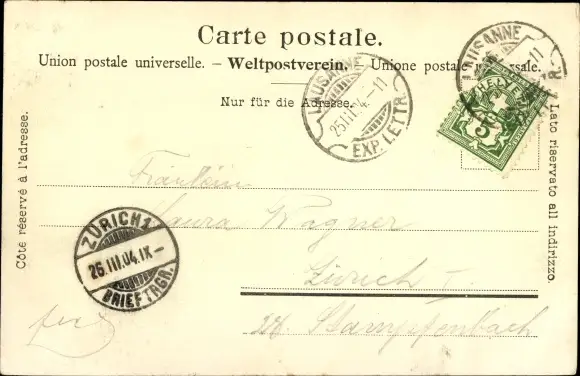 Carte postale.
Union postale universelle. – Weltpostverein. – Unione postale
Nur für die Adresse.
Côté réservé à l'adresse.
Lato riservato all indirizzo.
LAUSANNE
25 III 04 - 11
EXP. LETTR.
LAUSANNE
11
HELVETIA
5
Fräulein
Laura Wagner
Zürich I.
Stampfenbach
ZÜRICH 1
26.III.04.IX–
BRIEFTRGR.